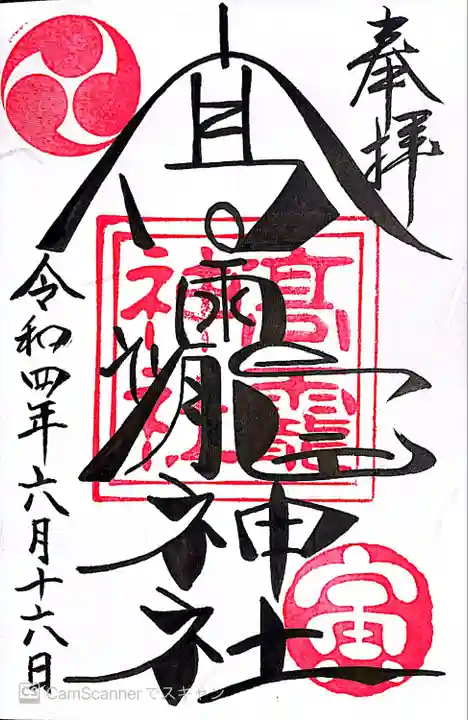 奉拝
高龗神社
高龗神社
寅
令和四年六月十六日
CS CamScanner でスキャン